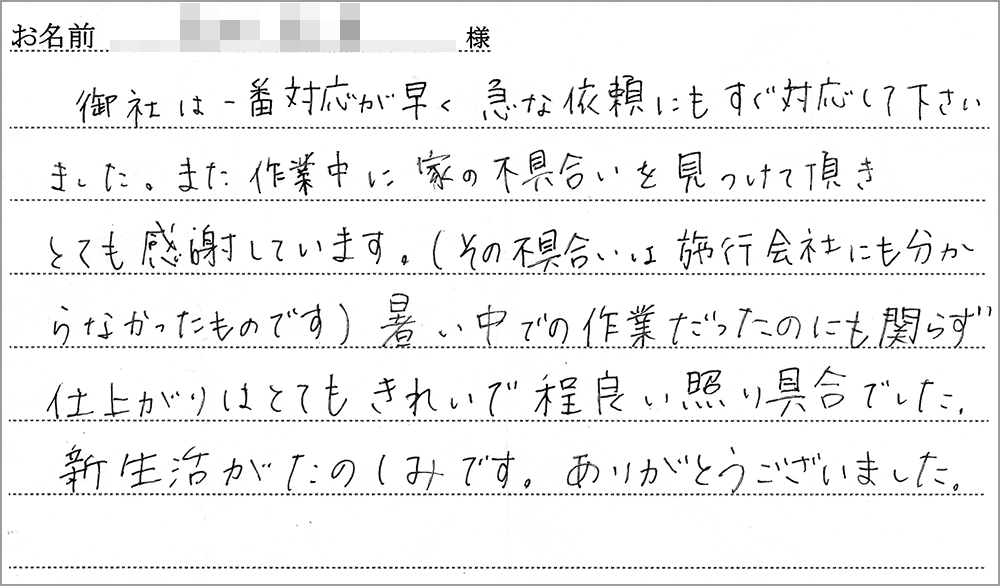 お名前 様
御社は一番対応が早く 急な依頼にもすぐ対応して下さい
ました。また作業中に家の不具合いを見つけて頂き
とても感謝しています。(その不具合いは施行会社にも分か
らなかったものです)暑い中での作業だったのにも関らず
仕上がりはとてもきれいで程良い照り具合でした。
新生活がたのしみです。ありがとうございました。